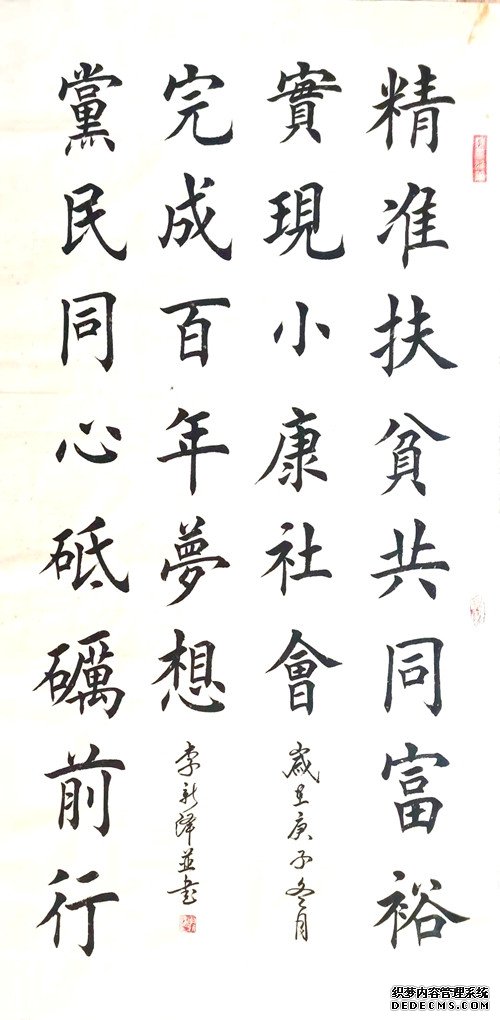 精准扶貧共同富裕
實現小康社會
歲在庚子冬月
完成百年夢想
李新泽並書
黨民同心砥礪前行
织梦内容管理系统
DEDECMS.COM